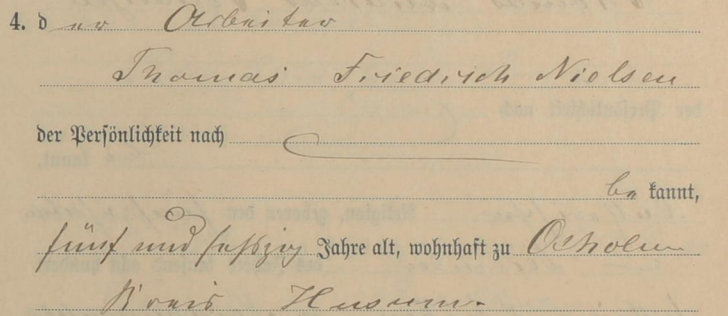 4. der Arbeiter
Thomas Friedrich Nielsen
der Persönlichkeit nach
be kannt,
fünf und sechszig Jahre alt, wohnhaft zu Osholm
Kreis Husum.